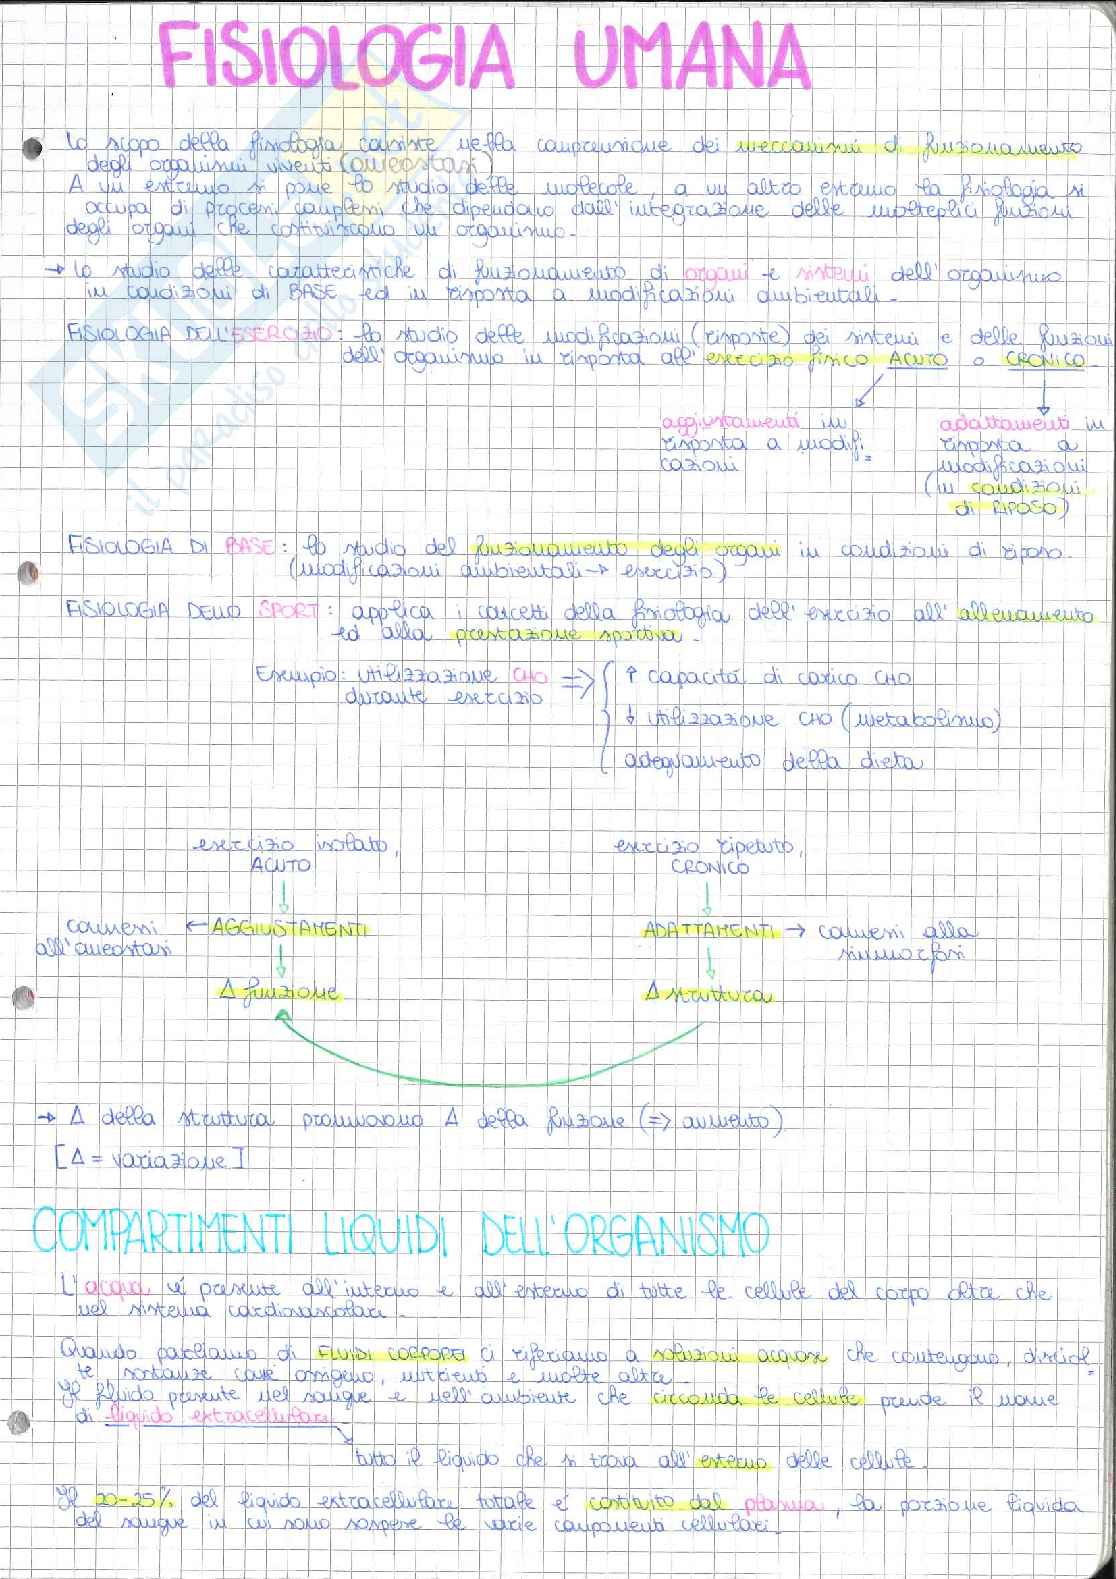 FISIOLOGIA UMANA
Lo scopo della fisiologia consiste nella comprensione dei meccanismi di funzionamento
degli organismi viventi (omeostasi)
A un estremo si pone lo studio delle molecole a un altro estremo la fisiologia si
occupa di processi complessi che dipendano dall'integrazione delle molteplici funzioni
degli organi che costituiscono un organismo.
→ lo studio delle caratteristiche di funzionamento di organi e sistemi dell'organismo
in condizioni di BASE ed in risposta a modificazioni ambientali.
FISIOLOGIA DELL'ESERCIZIO: lo studio delle modificazioni (risposte) dei sistemi e delle funzioni
dell'organismo in risposta all'esercizio fisico ACUTO o CRONICO.
aggiustamenti in
risposta a modifi=
cazioni
adattamenti in
risposta a
modificazioni
(in condizioni
di RIPOSO)
FISIOLOGIA DI BASE: lo studio del funzionamento degli organi in condizioni di riposo.
(modificazioni ambientali → esercizio)
FISIOLOGIA DELLO SPORT: applica i concetti della fisiologia dell'esercizio all'allenamento
ed alla prestazione sportiva.
Esempio: utilizzazione CHO ⇒ { ↑ capacità di carico CHO
durante esercizio
↓ utilizzazione CHO (metabolismo)
adeguamento della dieta
esercizio isolato,
ACUTO
esercizio ripetuto,
CRONICO
connessi ← AGGIUSTAMENTI
all'omeostasi
ADATTAMENTI → connessi alla
simmorfosi
Δ funzione
Δ struttura
→ Δ della struttura promuovono Δ della funzione (⇒ aumento)
[Δ = variazione]
COMPARTIMENTI LIQUIDI DELL'ORGANISMO
L'acqua è presente all'interno e all'esterno di tutte le cellule del corpo oltre che
nel sistema cardiovascolare.
Quando parliamo di FLUIDI CORPOREI ci riferiamo a soluzioni acquose che contengono, disciol=
te, sostanze come ossigeno, nutrienti e molte altre.
Il fluido presente nel sangue e nell'ambiente che circonda le cellule prende il nome
di liquido extracellulare
tutto il liquido che si trova all'esterno delle cellule.
Il 20-25% del liquido extracellulare totale è costituito dal plasma, la porzione liquida
del sangue in cui sono sospese le varie componenti cellulari.